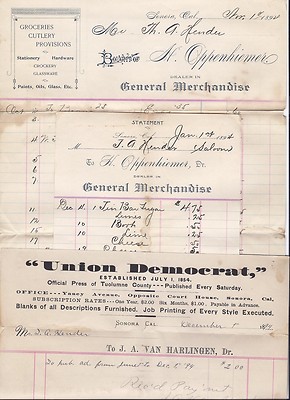 GROCERIES
CUTLERY
PROVISIONS
Stationery Hardware
CROCKERY
GLASSWARE
Paints, Oils, Glass, Etc.
Sonora, Cal. Nov. 1st 1894
Mr Th. A. Hender
Bought of H. Oppenhiemer
DEALER IN
General Merchandise
STATEMENT
Sonora, Cal. Jan. 1st 1894
T. A. Hender Saloon
To H. Oppenhiemer, Dr.
DEALER IN
General Merchandise
Dec 4 1 Tin Bar Sugar $4.75
Limes .25
10 Book .25
Lime .25
Cheese
Cheese
"Union Democrat,"
ESTABLISHED JULY 1, 1854.
Official Press of Tuolumne County — Published Every Saturday.
OFFICE—Yaney Avenue, Opposite Court House, Sonora, Cal.
SUBSCRIPTION RATES—One Year, $3.00 Six Months, $1.00, Payable in Advance.
Blanks of all Descriptions Furnished. Job Printing of Every Style Executed.
SONORA CAL. December 5 189
Mr. T. A. Hender
To J. A. VAN HARLINGEN, Dr.
To pub. ad from June 5 to Dec 5 '94 $2 00
Rec'd Paym't